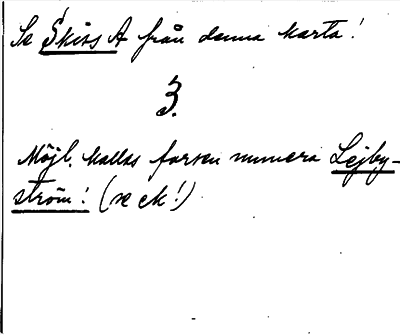 Se Skiss A från denna karta!
3.
Möjl. kallas forsen numera Lejby-
ström! (se ek!)